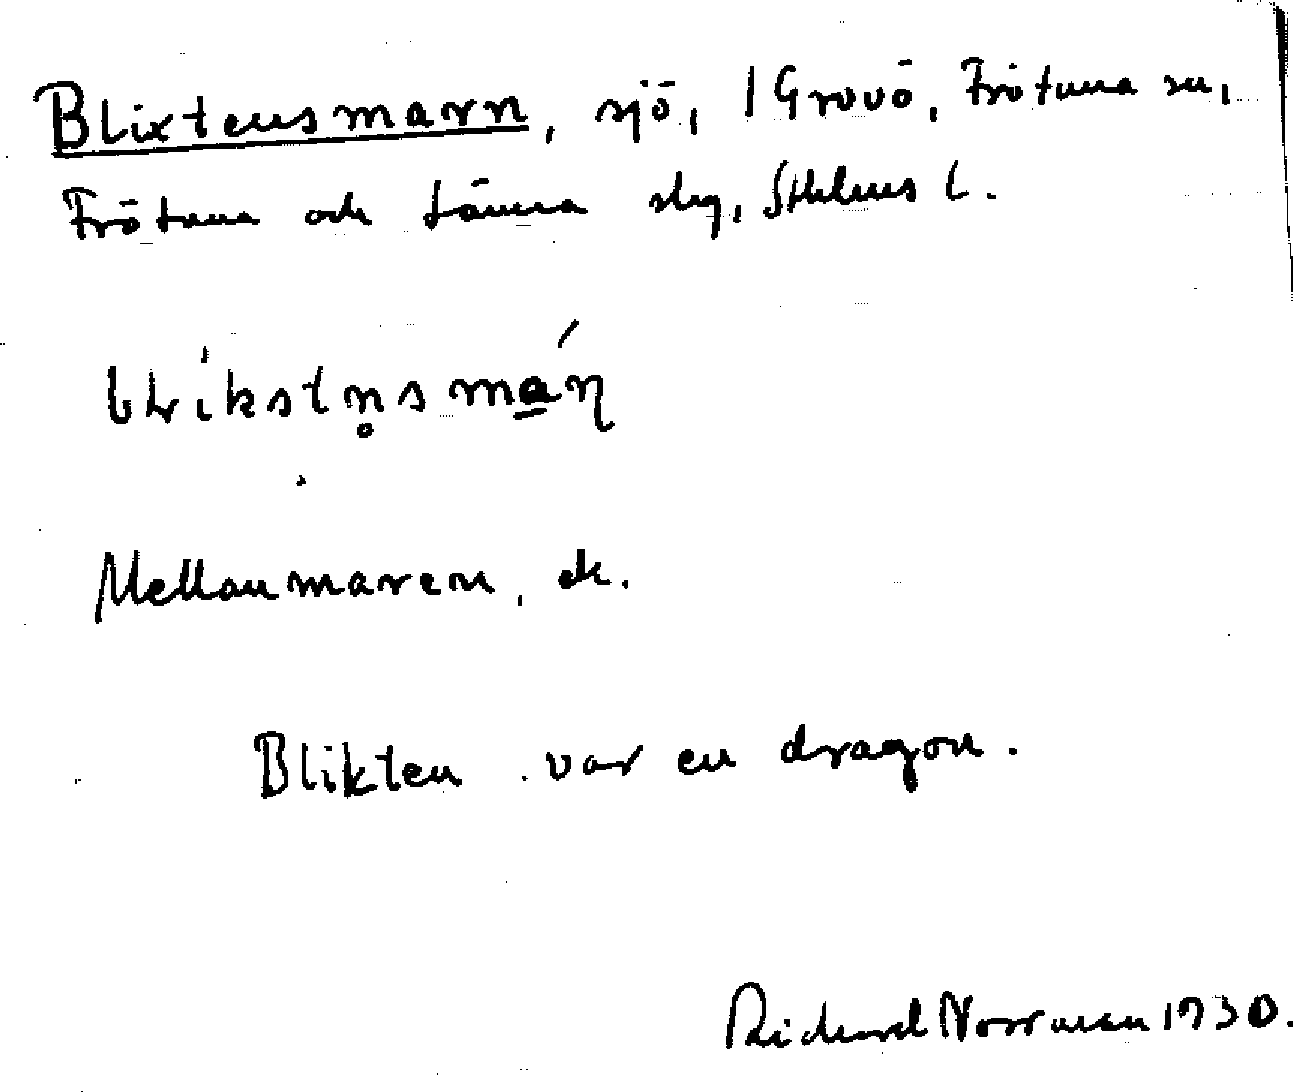 Blixtensmarn, sjö, 1 Grovö, Frötuna sn,
Frötuna och Länna skg, Sthlms l.
blikstn̥smá̱ṇ
Mellanmaren, ek.
Blikten var en dragon.
Richard Norrman 1930.